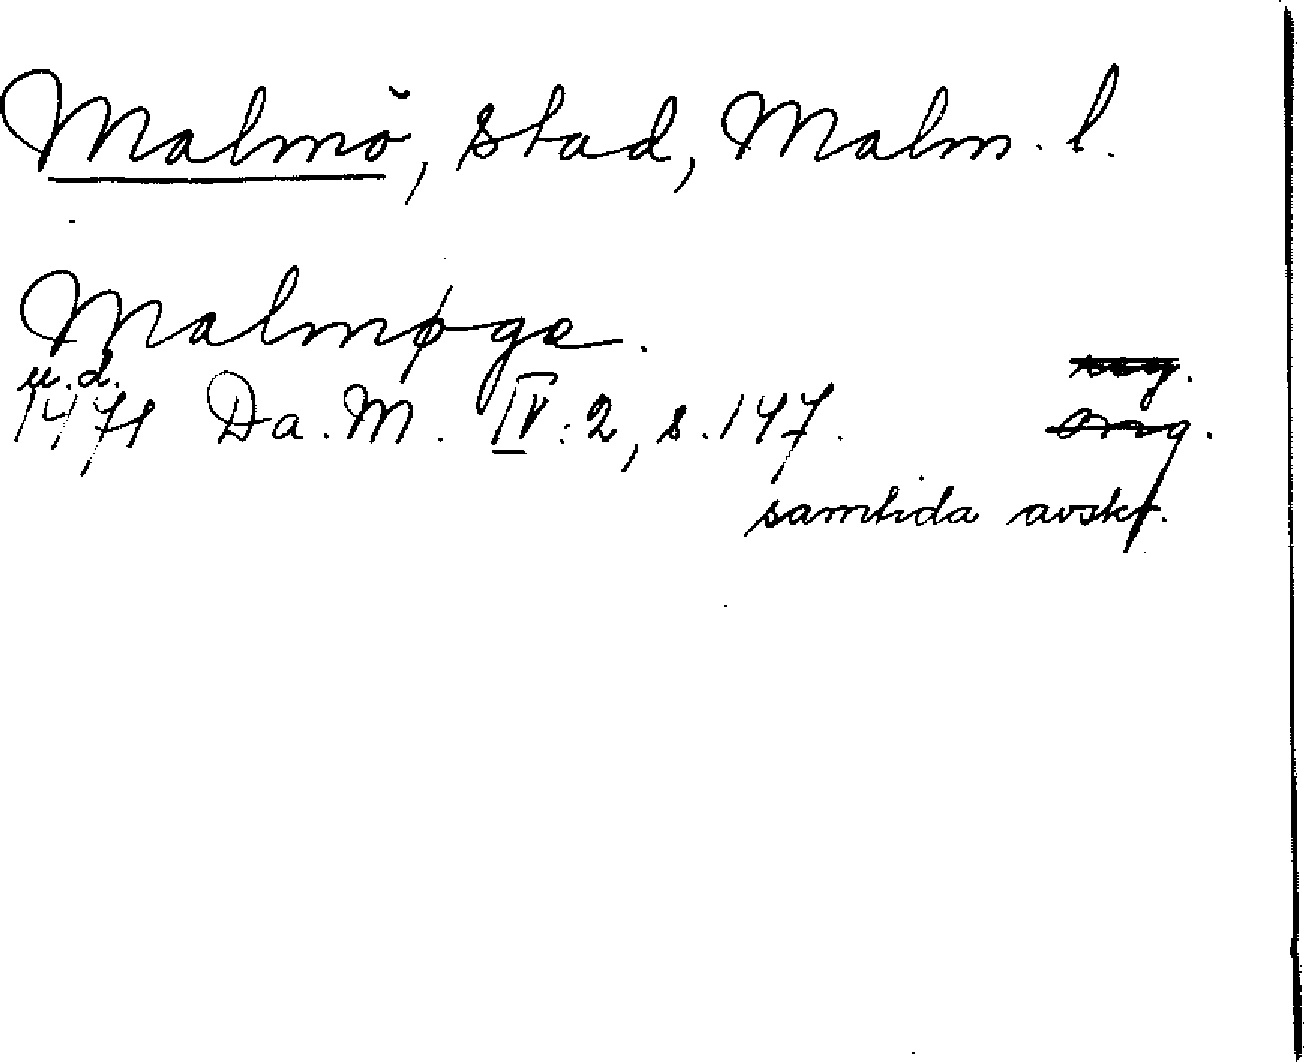 Malmö, stad, Malm. l.
Malmøge.
u.d.
1471 Da. M. IV: 2, s. 147.
samtida avskr.